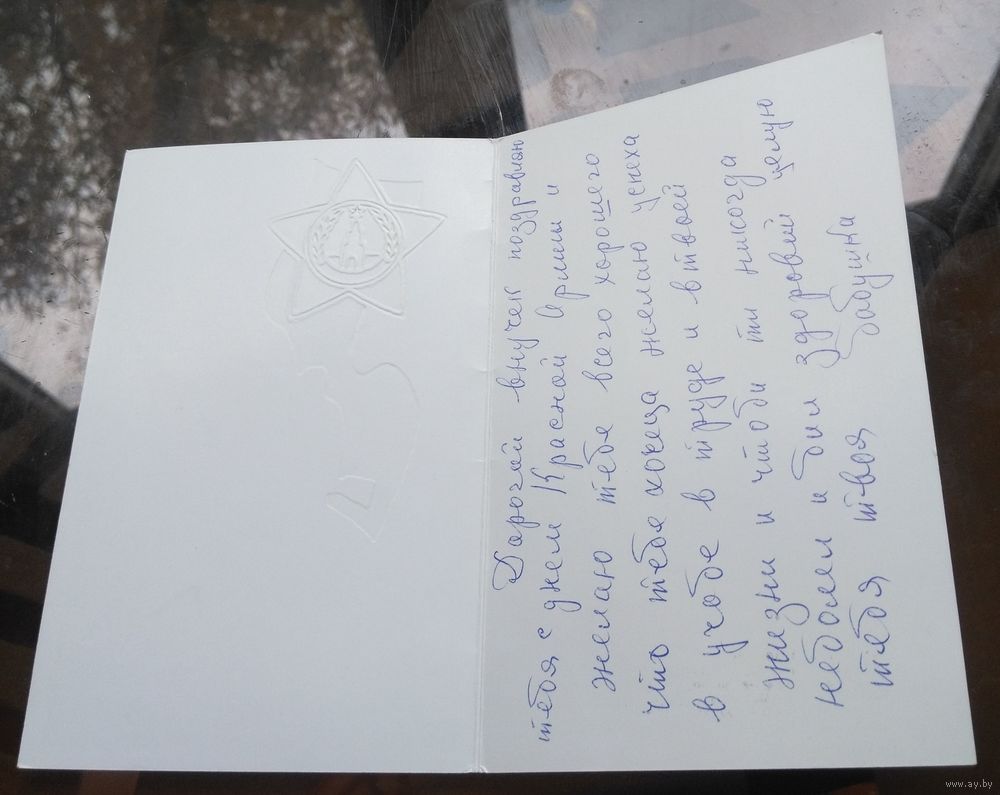 Дорогой внучек поздравляю
тебя с днем Красной Армии и
желаю тебе всего хорошего
что тебе хочеца желаю успеха
в учобе в труде и в твоей
жизни и чтоби ти никогда
неболел и бил здоровий целую
тебя твоя бабушка
www.ay.by